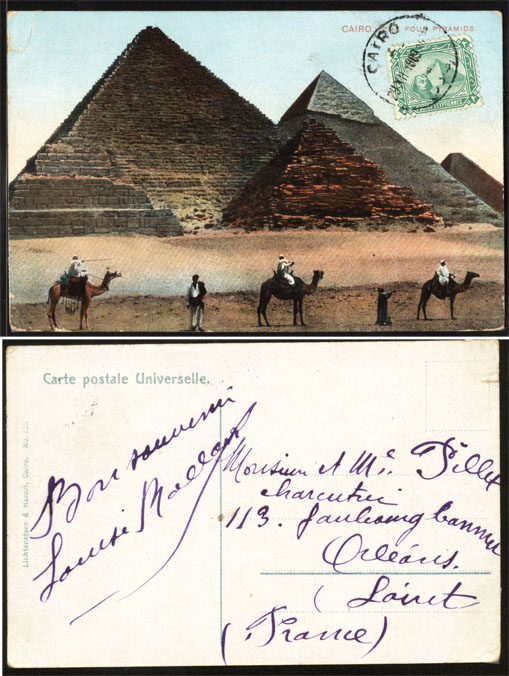 CAIRO. THE FOUR PYRAMIDS.
CAIRO
Carte postale Universelle.
Lichtenstern & Harari, Cairo. No.
Bon souvenir
Louise
Monsieur et Me
charcutier
113. faubourg
Orléans.
(Loiret
(France)